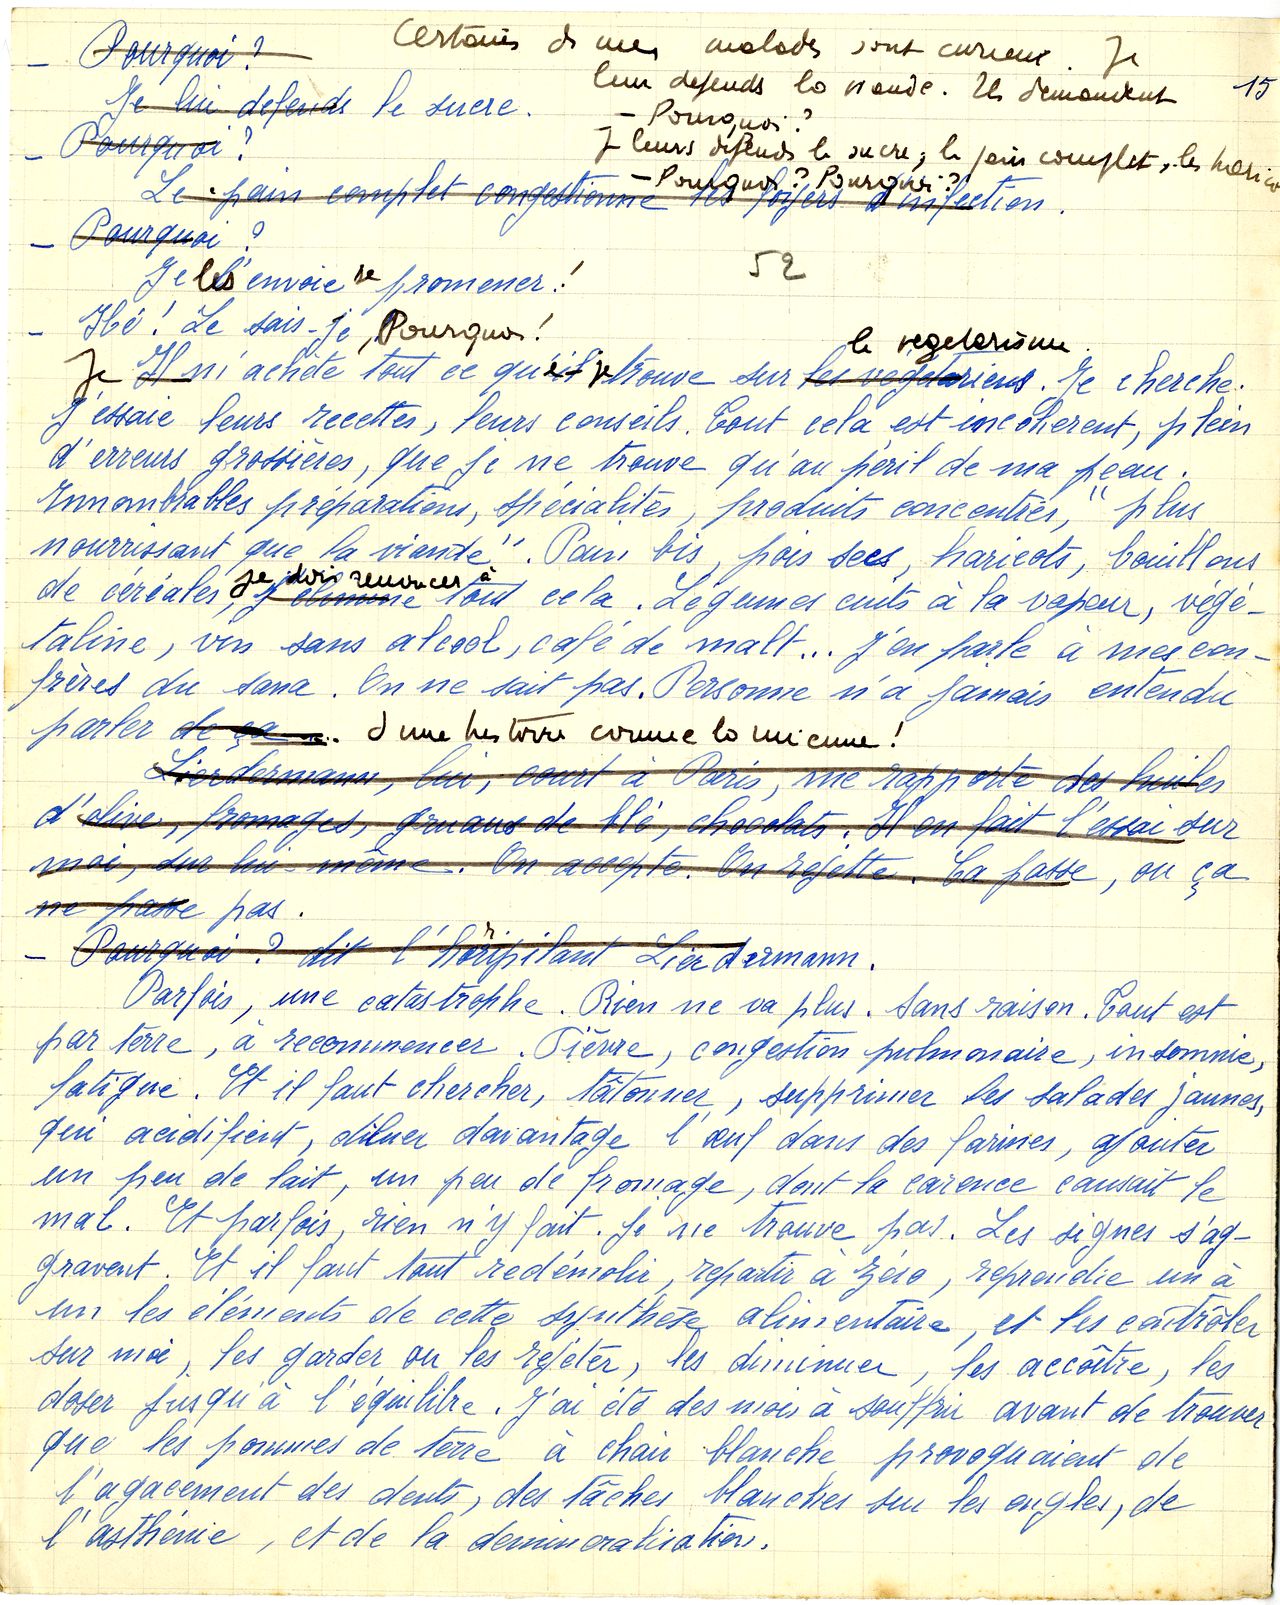 Certains de mes malades sont curieux. Je
leur défends la viande. Ils demandent
15
- Pourquoi?
Je leurs défends le sucre, le pain complet, les harico
- Pourquoi? Pourquoi?
- Pourquoi?
Je lui defends le sucre.
- Pourquoi?
Le pain complet congestionne les foyers d'infection.
- Pourquoi?
52
Je les envoie se promener!
- Hé! Le sais-je, Pourquoi!
le végétarisme.
Je Il m'achète tout ce qu'il je trouve sur les végétariens. Je cherche.
J'essaie leurs recettes, leurs conseils. Tout cela est incohérent, plein
d'erreurs grossières, que je ne trouve qu'au péril de ma peau.
Innombrables préparations, spécialités, produits concentrés, "plus
nourrissant que la viande". Pain bis, pois secs, haricots, bouillons
je dois renoncer à
de céréales, j'élimine tout cela. Légumes cuits à la vapeur, végé-
taline, vin sans alcool, café de malt... J'en parle à mes con-
frères du sana. On ne sait pas. Personne n'a jamais entendu
parler de ça... d'une histoire comme la mienne!
Lierdermann, lui, court à Paris, me rapporte des huiles
d'olive, fromages, gruaux de blé, chocolats. Il en fait l'essai sur
moi, sur lui-même. On accepte. On rejette. Ca passe, ou ça
ne passe pas.
- Pourquoi? dit l'horripilant Lierdermann.
Parfois, une catastrophe. Rien ne va plus. Sans raison. Tout est
par terre, à recommencer. Fièvre, congestion pulmonaire, insomnie,
fatigue. Et il faut chercher, tâtonner, supprimer les salades jaunes,
qui acidifient, diluer davantage l'œuf dans des farines, ajouter
un peu de lait, un peu de fromage, dont la carence causait le
mal. Et parfois, rien n'y fait. Je ne trouve pas. Les signes s'ag-
gravent. Et il faut tout redémolir, repartir à zéro, reprendre un à
un les éléments de cette synthèse alimentaire, et les contrôler
sur moi, les garder ou les rejeter, les diminuer, les accoître, les
doser jusqu'à l'équilibre. J'ai été des mois à souffrir avant de trouver
que les pommes de terre à chair blanche provoquaient de
l'agacement des dents, des tâches blanches sur les ongles, de
l'asthénie, et de la déminéralisation.